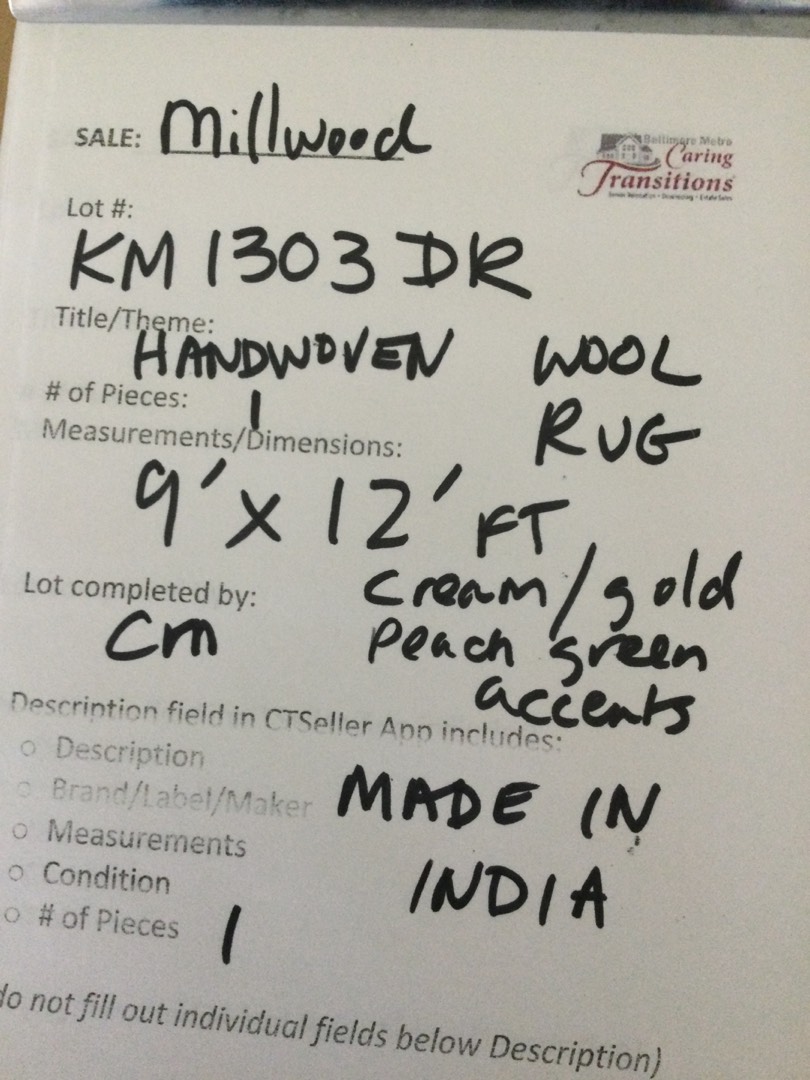 SALE: Millwood
Baltimore Metro
Caring
Transitions
Lot #:
KM 1303 DR
Title/Theme:
HANDWOVEN WOOL
RUG
# of Pieces: 1
Measurements/Dimensions:
9' x 12' FT
Lot completed by:
Cm
Cream/gold
Peach green
accents
Description field in CTSeller App includes:
o Description
o Brand/Label/Maker
MADE IN
INDIA
o Measurements
o Condition
o # of Pieces 1
do not fill out individual fields below Description)